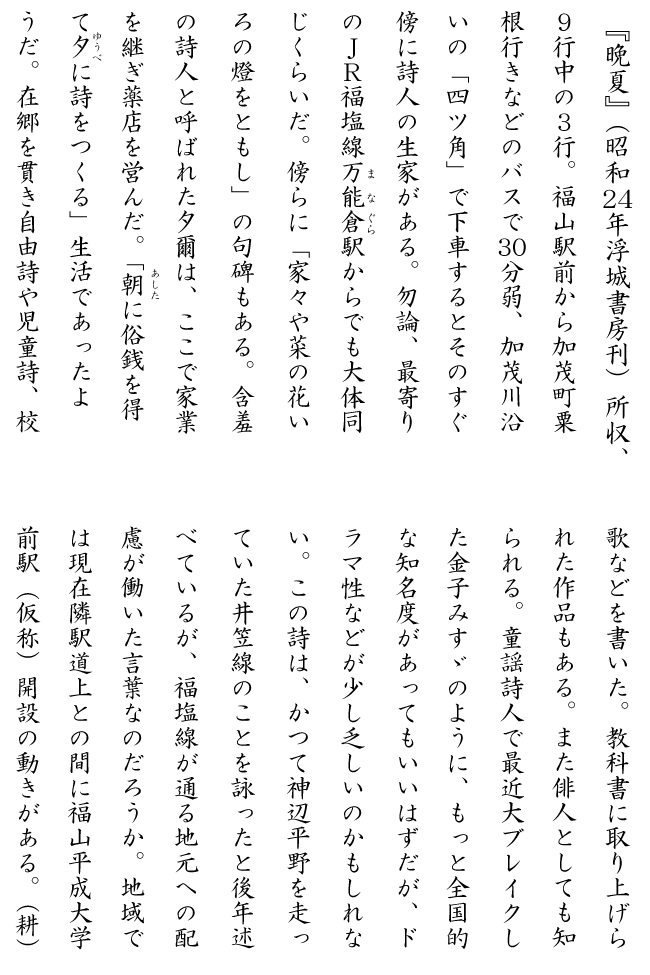 『晩夏』（昭和24年浮城書房刊）所収、
9行中の3行。福山駅前から加茂町粟
根行きなどのバスで30分弱、加茂川沿
いの「四ツ角」で下車するとそのすぐ
傍に詩人の生家がある。勿論、最寄り
のＪＲ福塩線万能倉駅からでも大体同
じくらいだ。傍らに「家々や菜の花い
ろの燈をともし」の句碑もある。含羞
の詩人と呼ばれた夕爾は、ここで家業
を継ぎ薬店を営んだ。「朝に俗銭を得
て夕に詩をつくる」生活であったよ
うだ。在郷を貫き自由詩や児童詩、校
歌などを書いた。教科書に取り上げら
れた作品もある。また俳人としても知
られる。童謡詩人で最近大ブレイクし
た金子みすゞのように、もっと全国的
な知名度があってもいいはずだが、ド
ラマ性などが少し乏しいのかもしれな
い。この詩は、かつて神辺平野を走っ
ていた井笠線のことを詠ったと後年述
べているが、福塩線が通る地元への配
慮が働いた言葉なのだろうか。地域で
は現在隣駅道上との間に福山平成大学
前駅（仮称）開設の動きがある。（耕）